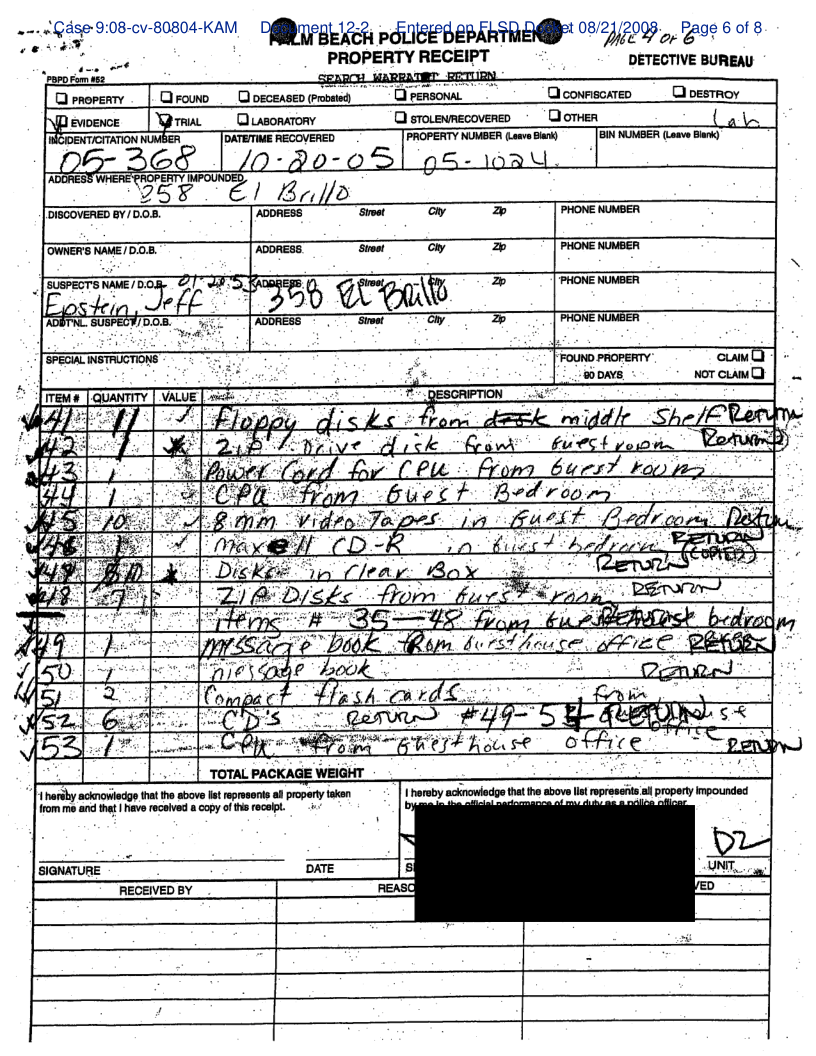 Case 9:08-cv-80804-KAM Document 12-2 Entered on FLSD Docket 08/21/2008 Page 6 of 8
PALM BEACH POLICE DEPARTMENT PAGE 4 OF 6
PROPERTY RECEIPT DETECTIVE BUREAU
PBPD Form #52 SEARCH WARRANT RETURN
PROPERTY FOUND DECEASED (Probated) PERSONAL CONFISCATED DESTROY
EVIDENCE TRIAL LABORATORY STOLEN/RECOVERED OTHER Lab
INCIDENT/CITATION NUMBER DATE/TIME RECOVERED PROPERTY NUMBER (Leave Blank) BIN NUMBER (Leave Blank)
05-368 10-20-05 05-1024
ADDRESS WHERE PROPERTY IMPOUNDED
258 El Brillo
DISCOVERED BY / D.O.B. ADDRESS Street City Zip PHONE NUMBER
OWNER'S NAME / D.O.B. ADDRESS Street City Zip PHONE NUMBER
SUSPECT'S NAME / D.O.B. 01-20-53 ADDRESS Street City Zip PHONE NUMBER
Epstein, Jeff 358 El Brillo
ADDT'NL. SUSPECT / D.O.B. ADDRESS Street City Zip PHONE NUMBER
SPECIAL INSTRUCTIONS FOUND PROPERTY CLAIM
90 DAYS NOT CLAIM
ITEM # QUANTITY VALUE DESCRIPTION
41 11 Floppy disks from desk middle Shelf Return
42 1 ZIP Drive disk from Guest room Return
43 1 Power Cord for CPU from Guest room
44 1 CPU from Guest Bedroom
45 10 8mm video Tapes in Guest Bedroom Return
46 1 maxell CD-R in Guest bedroom RETURN
47 Disks in Clear Box RETURN (COPIED)
48 7 ZIP Disks from Guest room RETURN
items # 35-48 from bedroom
49 1 message book from Guesthouse office RETURN
50 1 message book RETURN
51 2 Compact flash cards from
52 6 CD'S RETURN #49- office
53 1 CPU from Guesthouse office RETURN
TOTAL PACKAGE WEIGHT
I hereby acknowledge that the above list represents all property taken
from me and that I have received a copy of this receipt.
I hereby acknowledge that the above list represents all property impounded
by me in the official performance of my duty as a police officer.
D2
SIGNATURE DATE UNIT
RECEIVED BY REASO VED